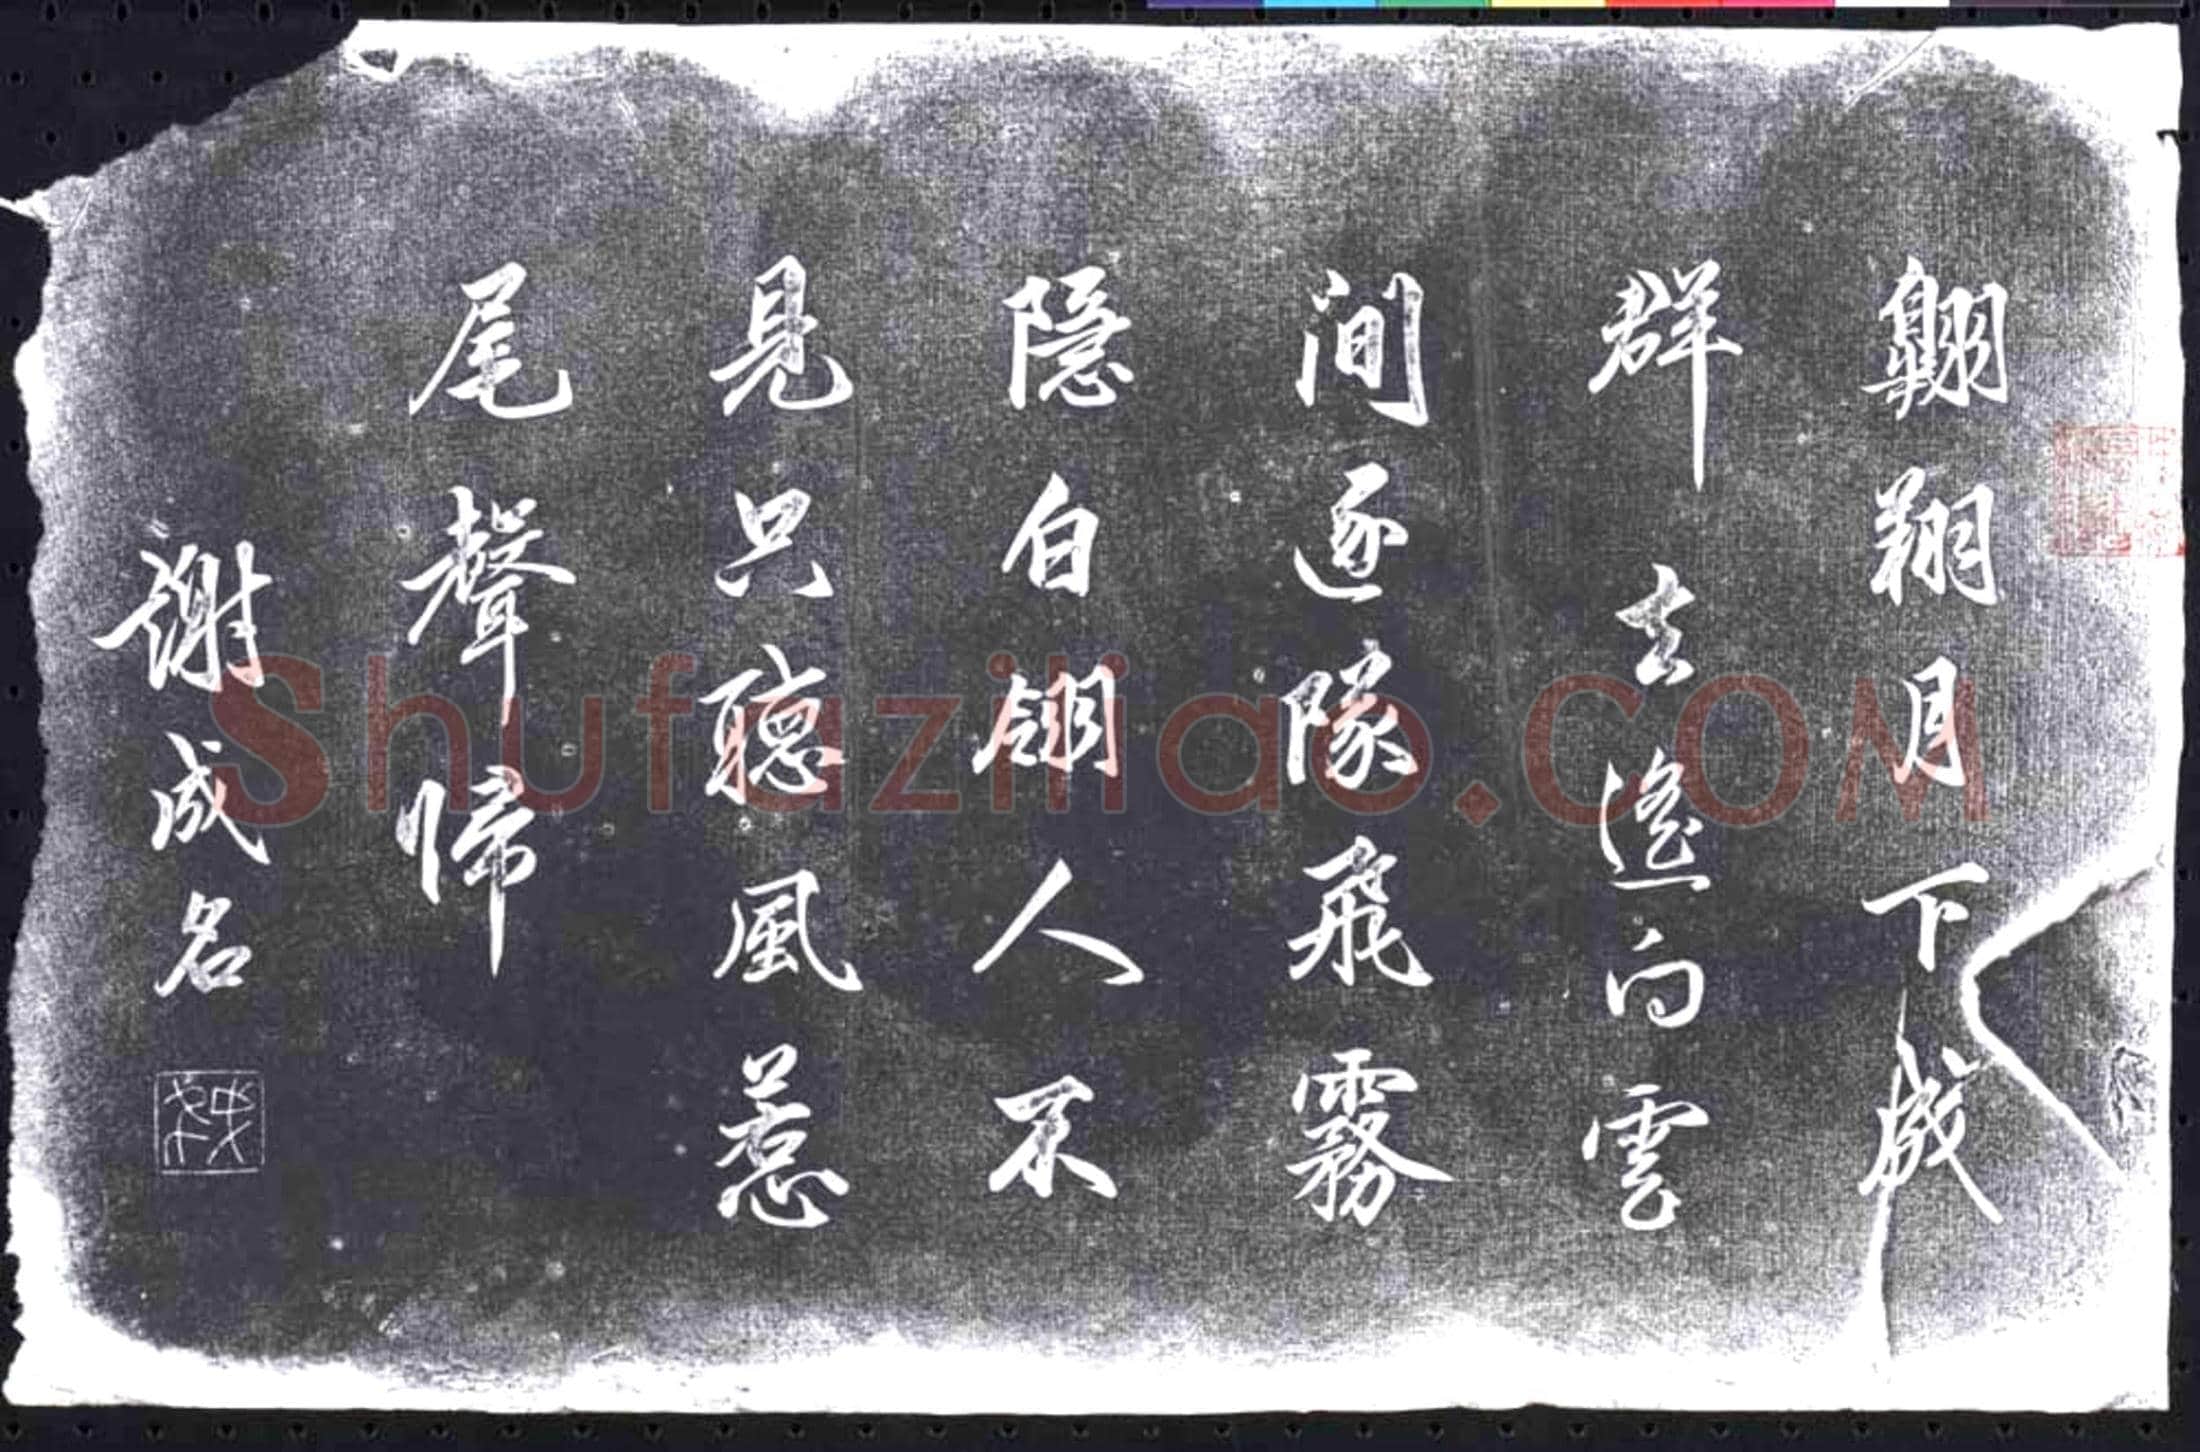 翱翔月下成
群去遙向雲
间逐隊飛霧
隱白翎人不
見只聽風惹
尾聲歸
謝成名
Shufaziliao.COM